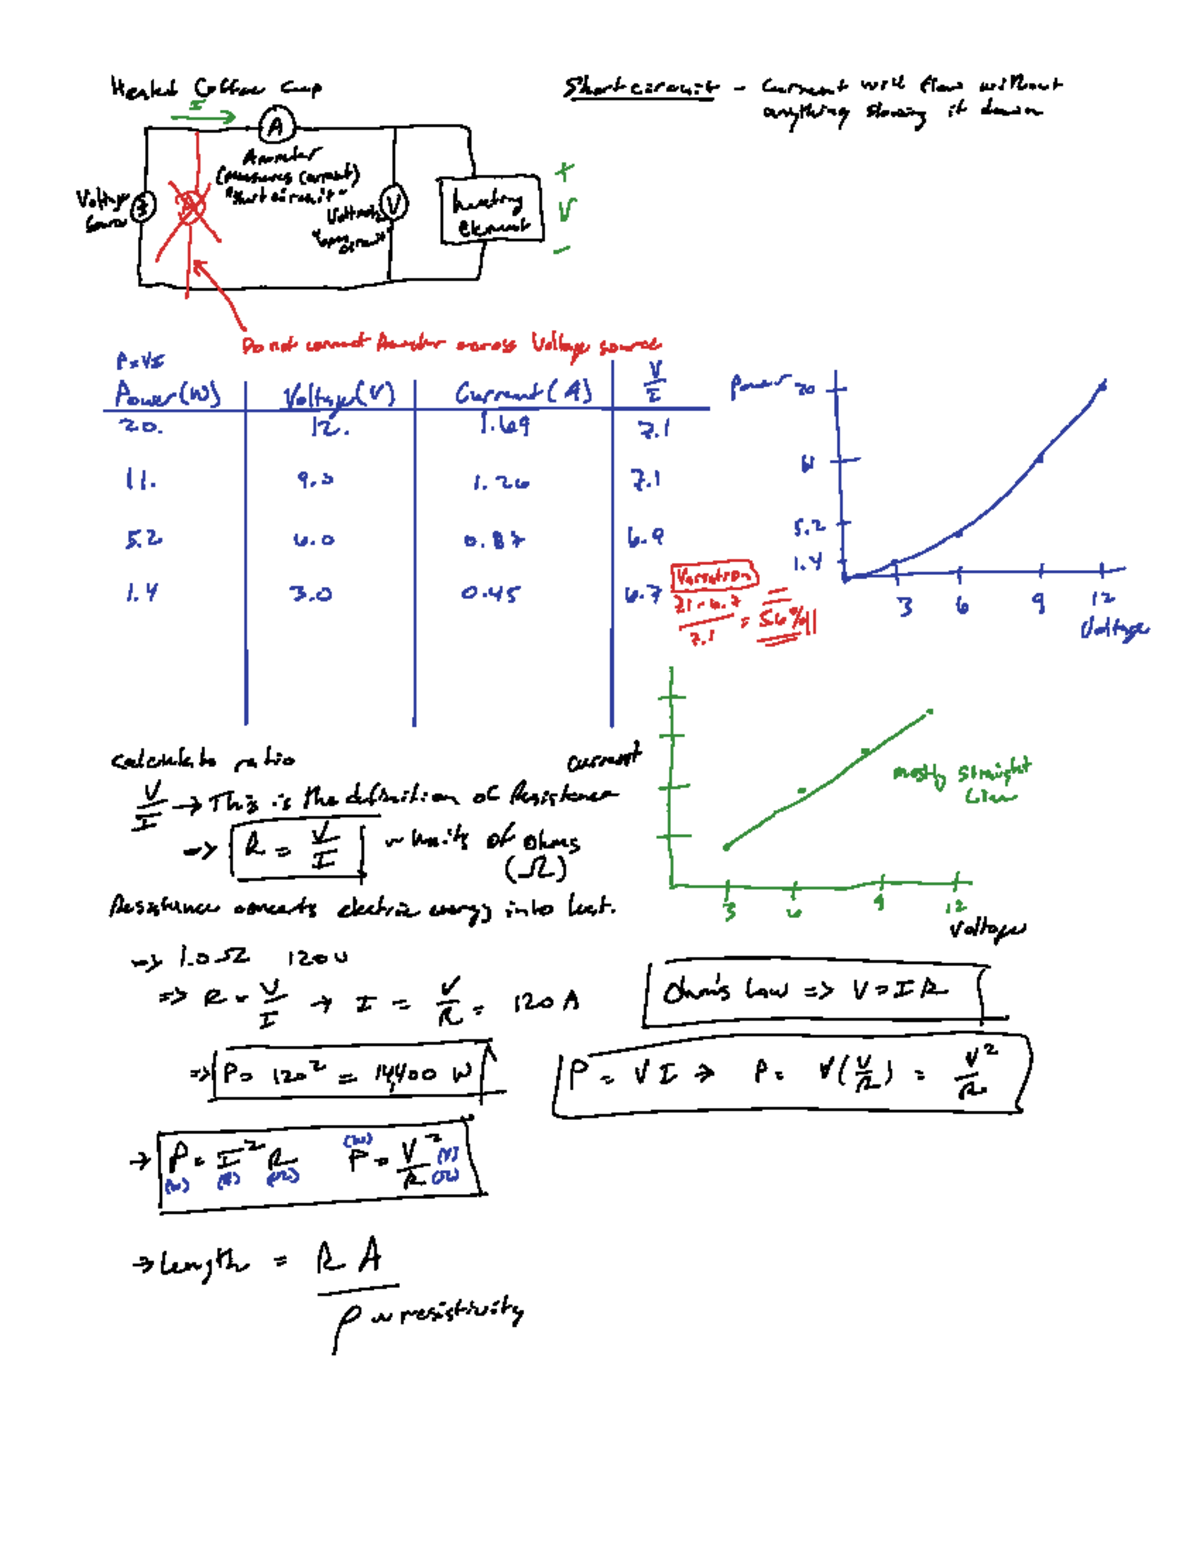 Heated Coffee Cup
Short circuit - Current will flow without
anything slowing it down
I
A
Ammeter
(measures current)
"Short circuit"
Voltage
Source
V
"open
circuit"
heating
Element
+
V
-
Do not connect Ammeter across Voltage source
P=VI
Power(W) Voltage(V) Current(A) V/I
20. 12. 1.69 7.1
11. 9.0 1.26 7.1
5.2 6.0 0.87 6.9
1.4 3.0 0.45 6.7
Variation
7.1-6.7/7.1 = 5.6%!!
Power 20
11
5.2
1.4
3 6 9 12
Voltage
Calculate ratio
V/I → This is the definition of Resistance
=> R = V/I ~ units of ohms
(Ω)
Current
mostly straight
line
3 6 9 12
Voltage
Resistance converts electric energy into heat.
=> 1.0Ω 120V
=> R = V/I → I = V/R = 120 A
=> P = 120² = 14,400 W
Ohm's Law => V = IR
P = VI => P = V(V/R) = V²/R
→ P = I²R P = V²/R
(W) (A) (Ω) (W) (V) (Ω)
→ Length = RA/ρ ~ resistivity